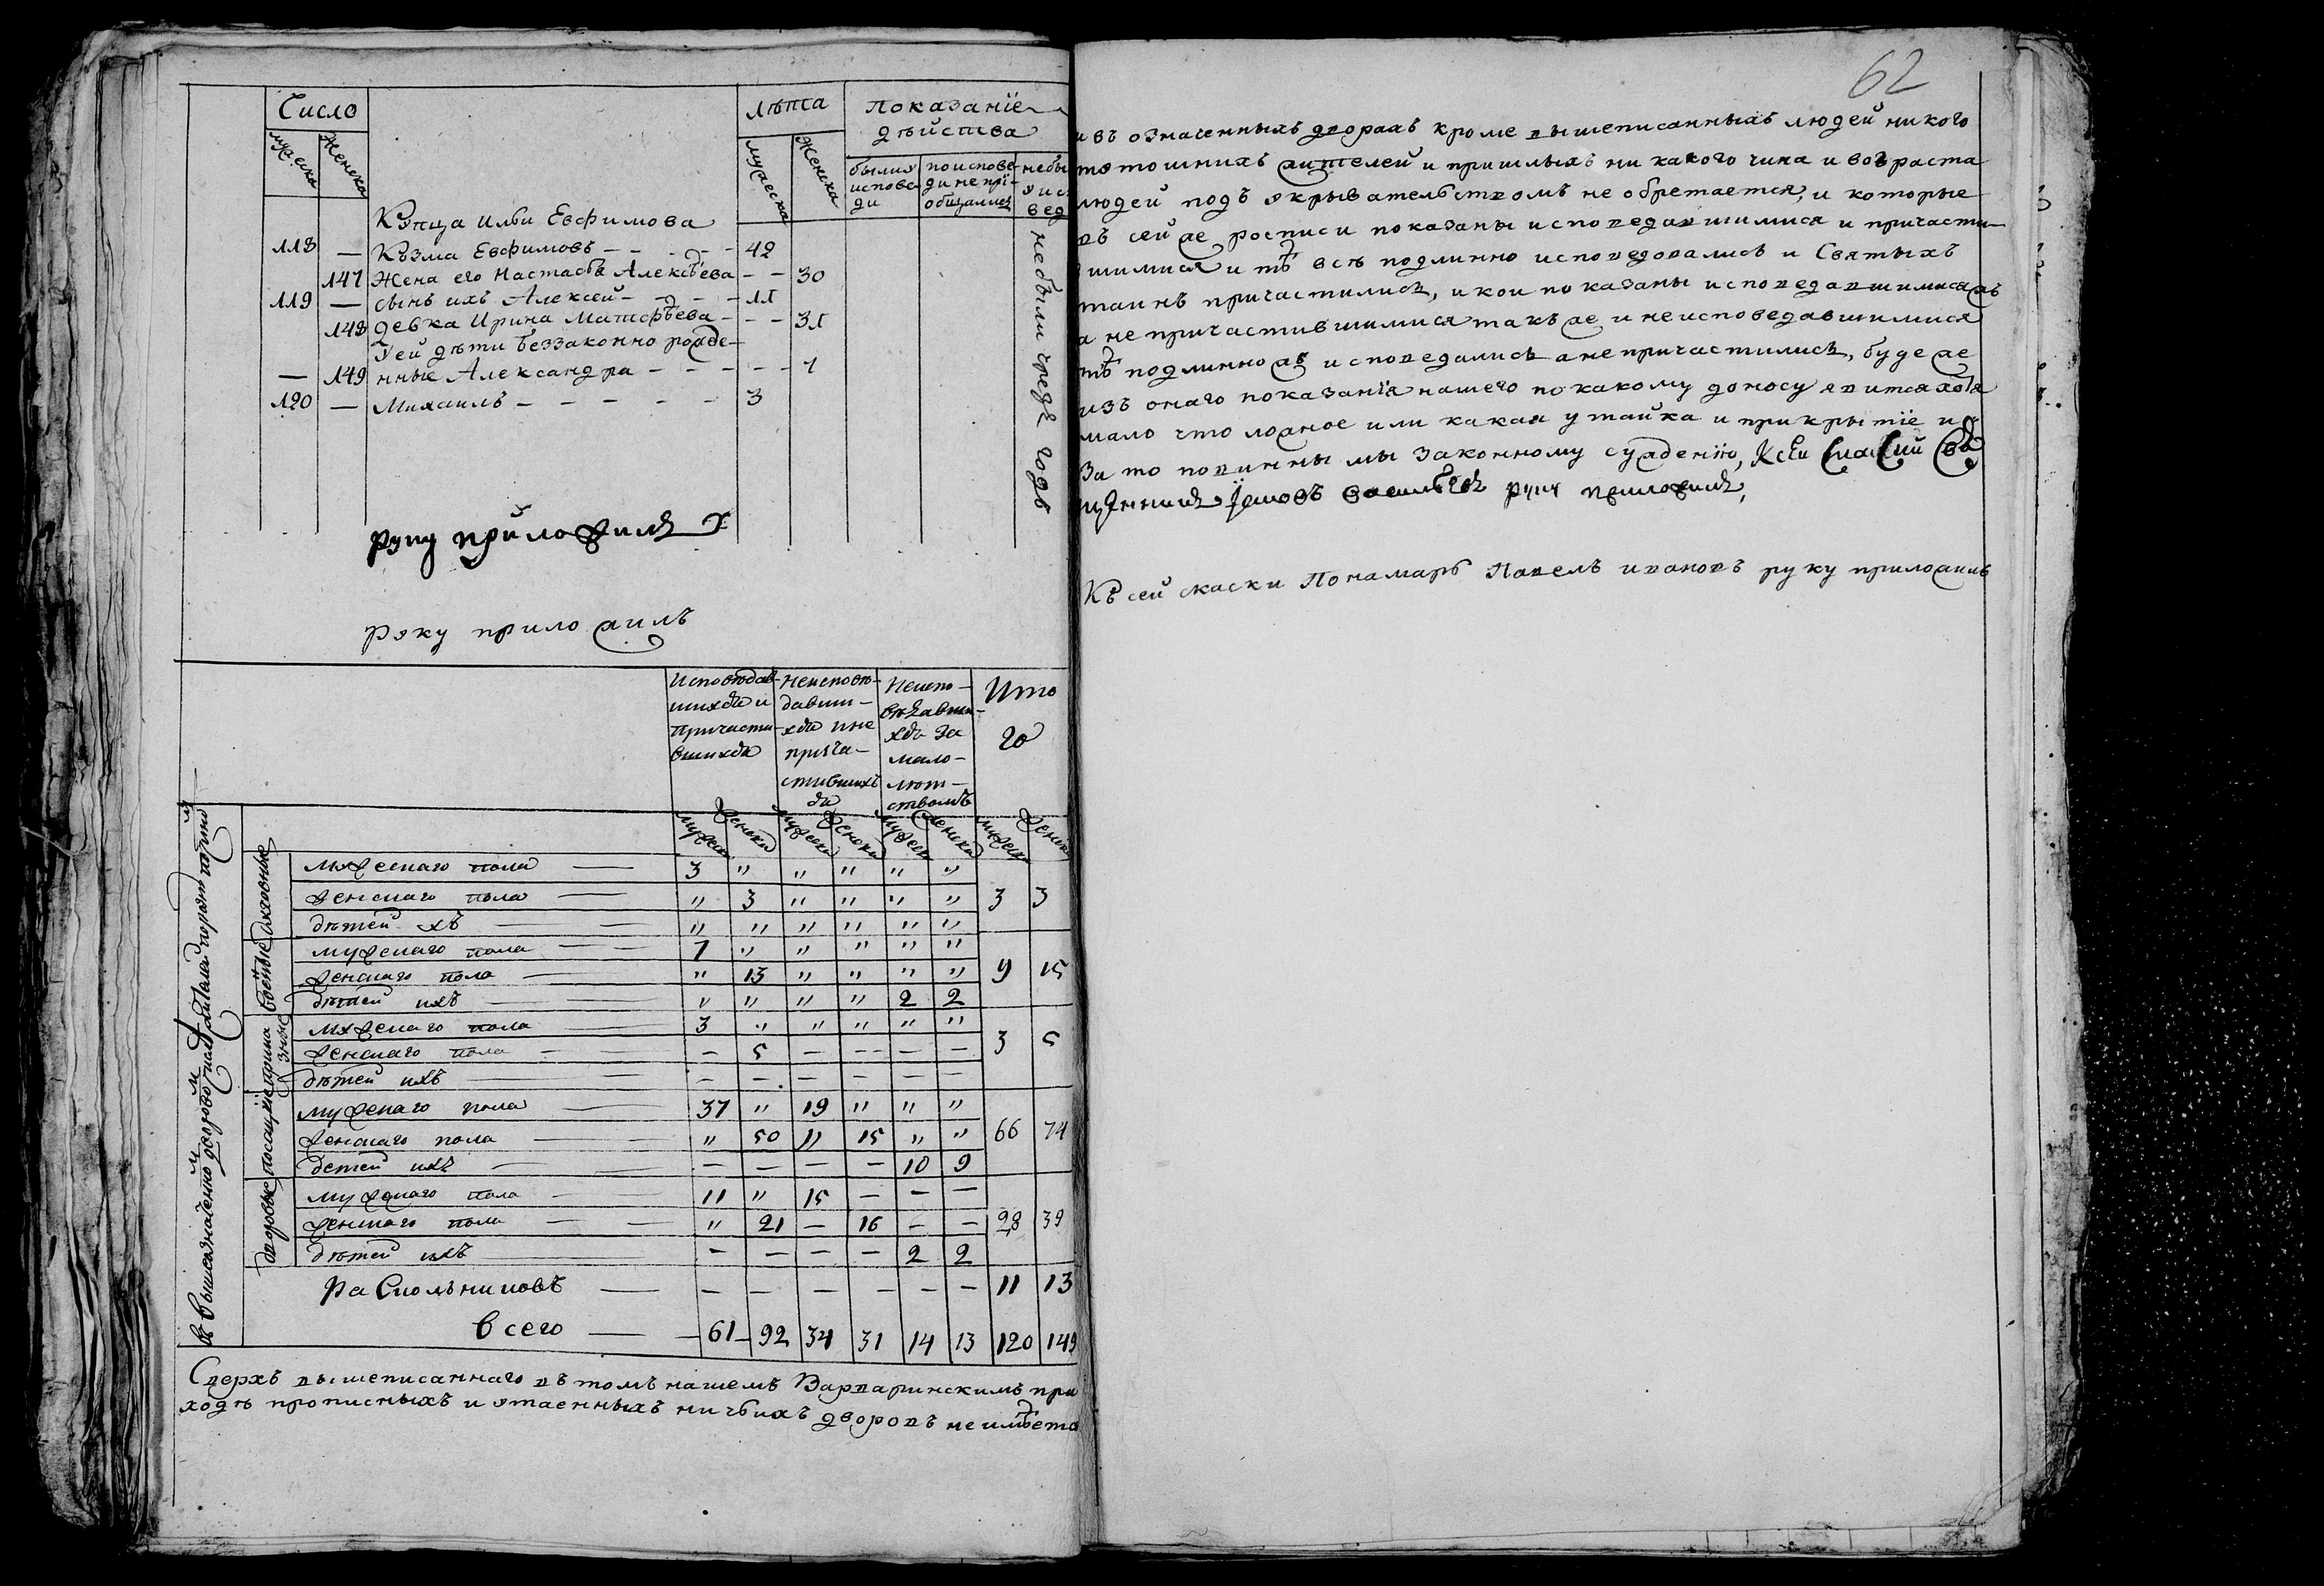 Число
мужеска
женска
лѣта
мужеска
женска
показанїе
дѣйства
были у
испове
ди
по испове
ди не прї-
общались
небы
у ис
вед
не были чредъ годъ
Купца Ильи Евфимова
118 — Кузма Евфимовъ — — — 42
147 Жена его Настасья Алексѣева — — 30
119 — сынъ ихъ Алексей — — — 11
148 девка Ирина Матфѣева — — — 31
у ей дѣти беззаконно рожде-
— 149 нные Александра — — — — 7
120 — Михаилъ — — — — 3
руку приложилъ
руку приложилъ
Исповѣдав-
шихся и
причасти-
вшихся
неисповѣ-
давши-
хся и не
прича-
стившихъ
ся
Неиспо-
вѣдавши-
хся за
мало-
лѣт-
ствомъ
Ито
го
мужеска женска мужеска женска мужеска женска мужеска женска
духовные
мужескаго пола — 3 " " " " "
женскаго пола — " 3 " " " " 3 3
дѣтей ихъ — " " " " " "
военые
мужескаго пола — 7 " " " " "
женскаго пола — " 13 " " " " 9 15
дѣтей ихъ — " " " " 2 2
приказные
мужескаго пола — 3 " " " " "
женскаго пола — — 5 — — — — 3 5
дѣтей ихъ — — — — — — —
посацкие
мужескаго пола — 37 " 19 " " "
женскаго пола — " 50 " 15 " " 66 74
детей ихъ — — — — — 10 9
дворовые
мужескаго пола — 11 " 15 — — —
женскаго пола — " 21 — 16 — — 28 39
дѣтей ихъ — — — — — 2 2
Раскольниковъ — — — — — — — 11 13
всего — 61 92 34 31 14 13 120 149
Сверхъ вышеписаннаго въ томъ нашемъ Варваринскимъ при
ходѣ прописныхъ и утаенныхъ ничьихъ дворовъ не имѣетъ
62
и въ означенныхъ дворахъ кроме вышеписанныхъ людей никого
тутошнихъ жителей и пришлыхъ ни какого чина и возраста
людей подъ укрывательствомъ не обретается, и которые
въ сей же росписи показаны исповедавшимися и причасти-
шимися и тѣ всѣ подлинно исповедовались и Святыхъ
таинъ причастились, и кои показаны исповедавшимися жъ
а не причастившимися такъ же и не исповедавшимися
тѣ подлинно жъ исповедались а не причастились, буде же
изъ онаго показанїя нашего по какому доносу явится хотя
мало что ложное или какая утайка и прикрытїе и
за то повинны мы законному сужденїю, К сеи скаски свя
щенникъ Iаковъ Васильевъ руку приложилъ,
Къ сей скаски Понамарь Павелъ Ивановъ руку приложилъ